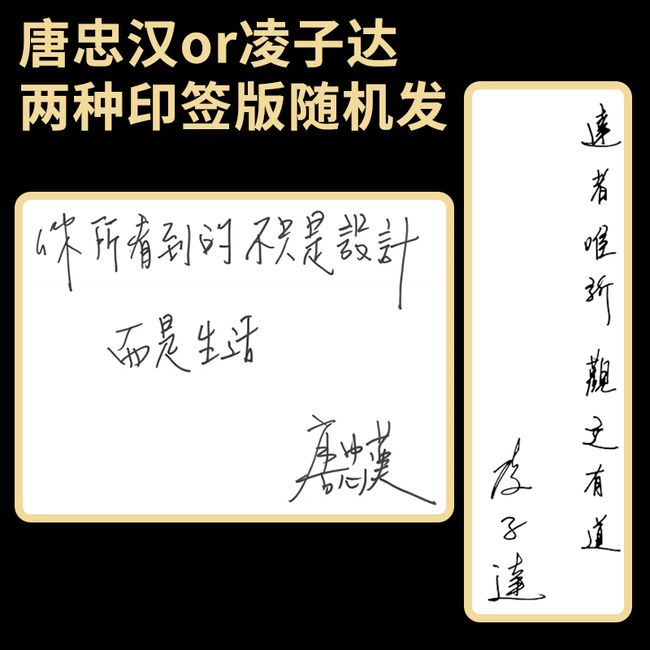 唐忠汉or凌子达
两种印签版随机发
你所看到的不只是設計
而是生活
唐忠漢
達者唯新觀之有道
凌子達